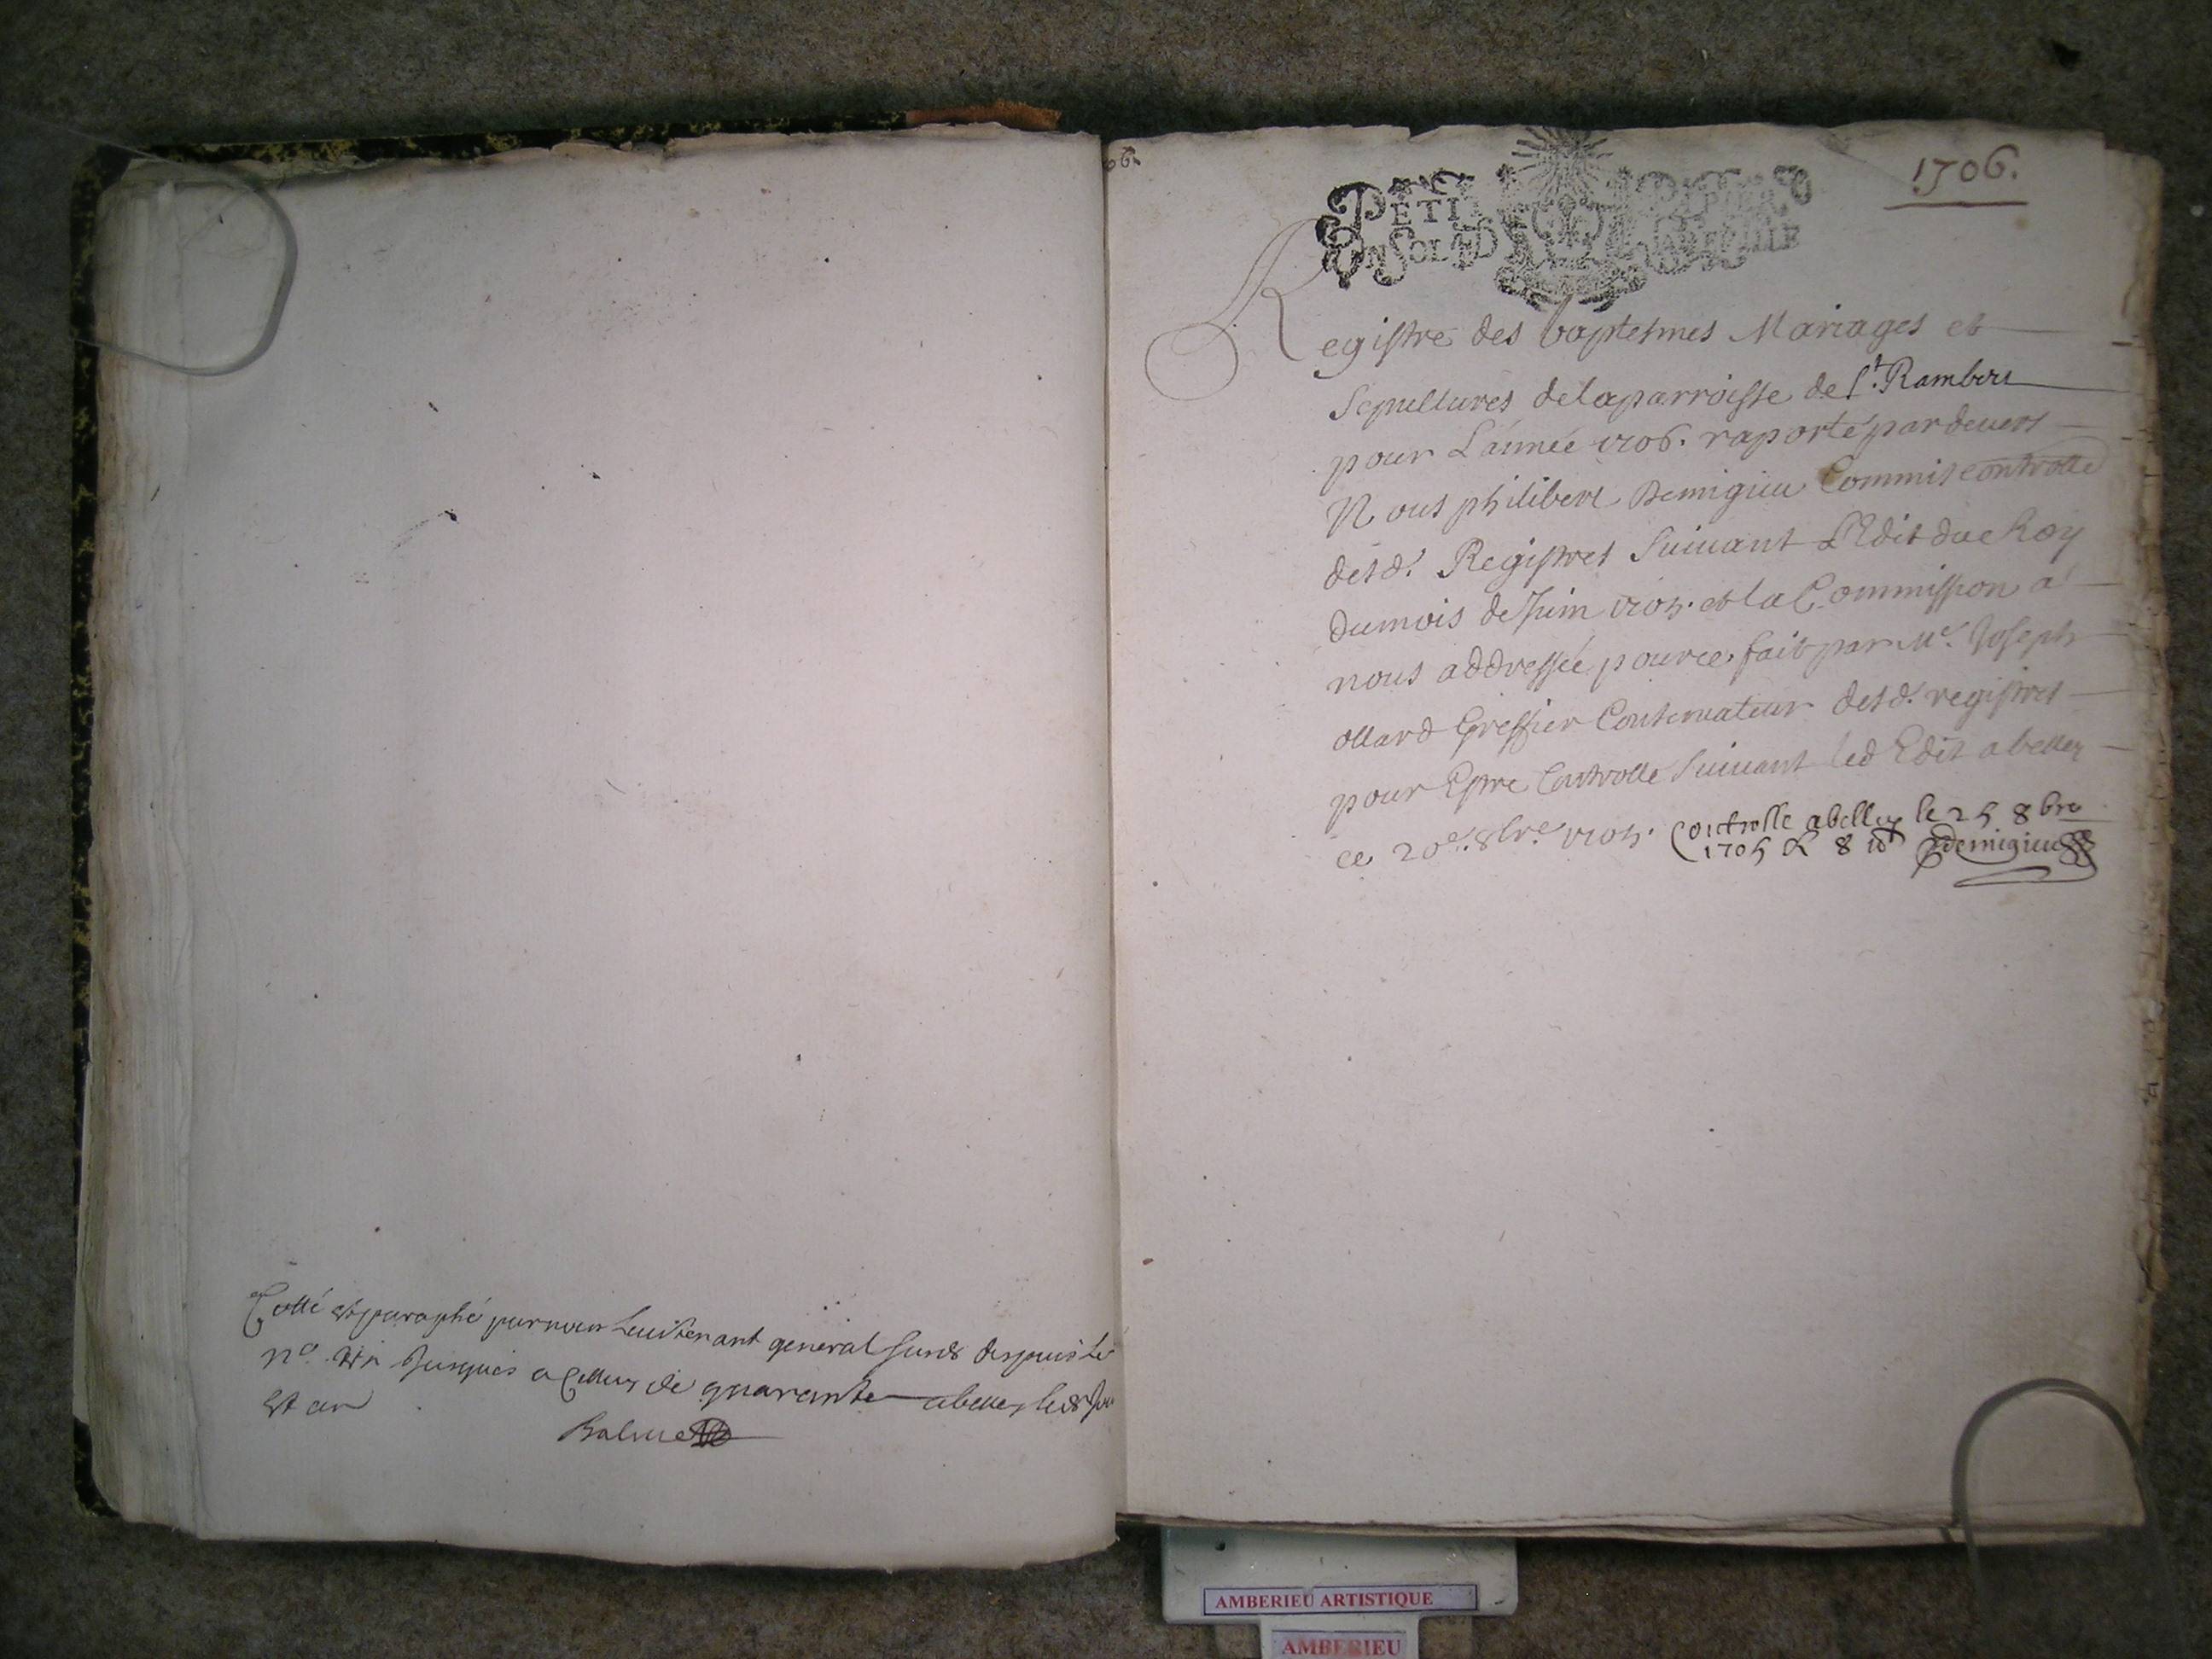 Cotté et paraphé par nous Lieutenant general susd despuis Le
n.º un Jusques a Celluy de quarante abelley lesd Jour
et an
Balme
1706.
PETIT PAPIER
UN SOL 4 D LA FEUILLE
Registre des baptesmes Mariages et
Sepultures de la parroisse de S.t Rambert
pour L'année 1706. raporté pardevers
Nous philibert Demigieu Commis controlle
desd. Registres Suivant L'Edit du Roy
du mois de Juin 1705. et la Commission a
nous addressée pour ce fait par M.e Joseph
ollard Greffier Conservateur desd. registres
pour Estre Controllé Suivant led Edit a belley
ce 20.e 8bre. 1705.
Controlle abelley le 25 8bre
1705 R 8 s Demigieu
AMBERIEU ARTISTIQUE
AMBERIEU